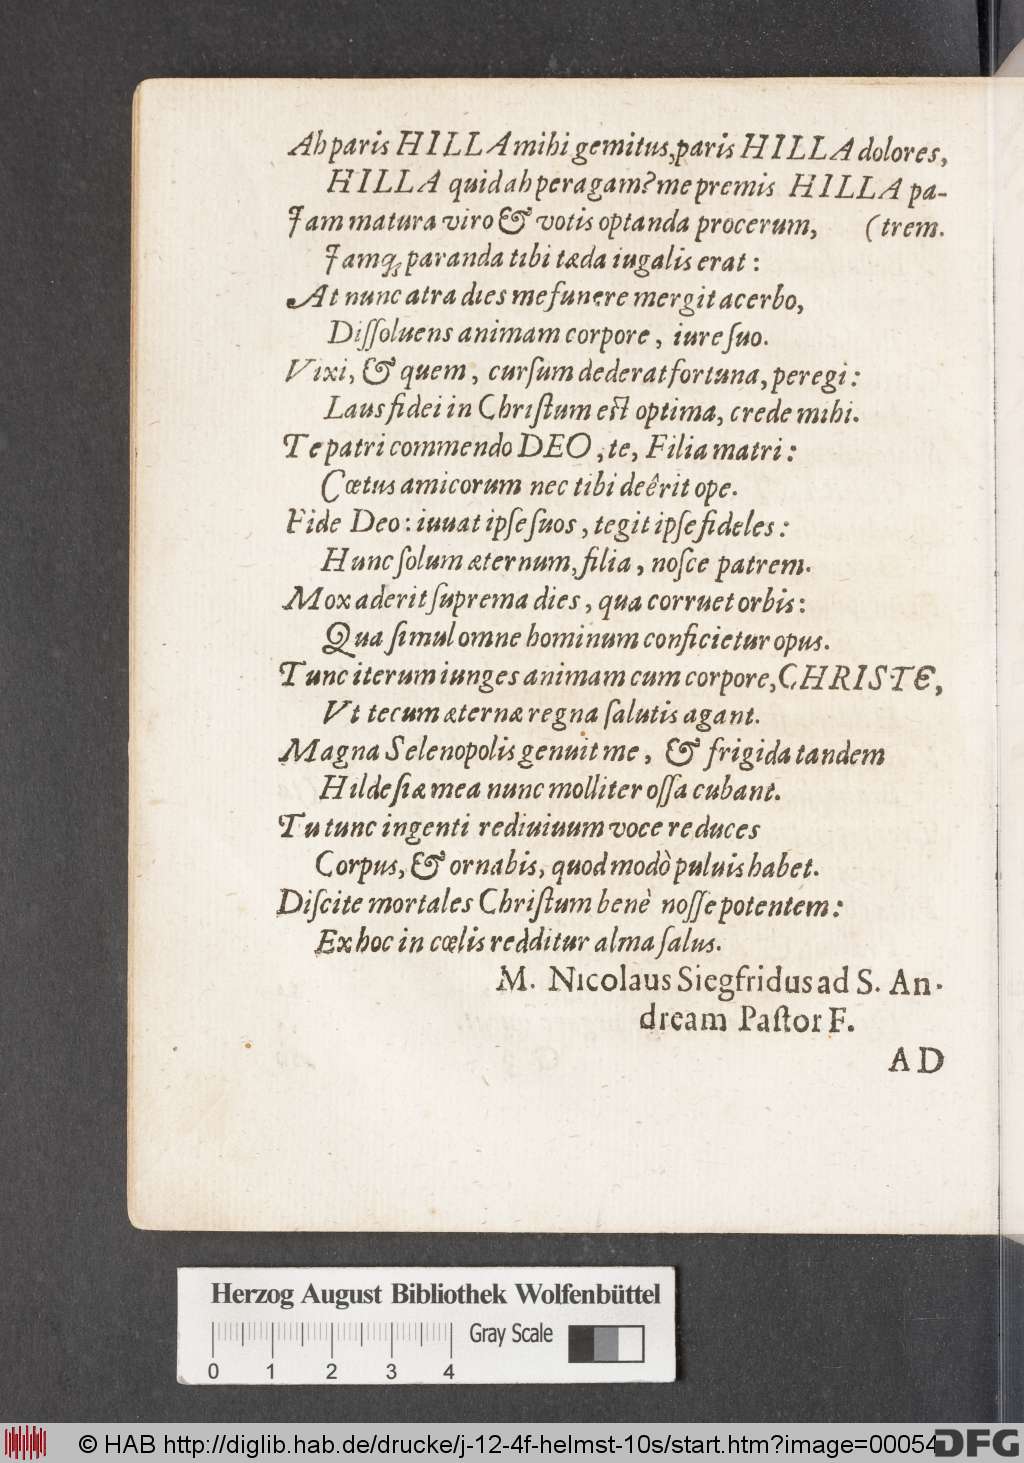 Ah paris HILLA mihi gemitus, paris HILLA dolores,
HILLA quid ah peragam? me premis HILLA pa-
Jam matura viro & votis optanda procerum, (trem.
Jamq; paranda tibi tæda iugalis erat:
At nunc atra dies me funere mergit acerbo,
Diſſoluens animam corpore, iure ſuo.
Vixi, & quem, curſum dederat fortuna, peregi:
Laus fidei in Chriſtum eſt optima, crede mihi.
Te patri commendo DEO, te, Filia matri:
Cœtus amicorum nec tibi deêrit ope.
Fide Deo: iuuat ipſe ſuos, tegit ipſe fideles:
Hunc ſolum æternum, filia, noſce patrem.
Mox aderit ſuprema dies, qua corruet orbis:
Qua ſimul omne hominum conficietur opus.
Tunc iterum iunges animam cum corpore, CHRISTE,
Vt tecum æternæ regna ſalutis agant.
Magna Selenopolis genuit me, & frigida tandem
Hildeſiæ mea nunc molliter oſſa cubant.
Tu tunc ingenti rediuiuum voce reduces
Corpus, & ornabis, quod modò puluis habet.
Diſcite mortales Chriſtum benè noſſe potentem:
Ex hoc in cœlis redditur alma ſalus.
M. Nicolaus Siegfridus ad S. An-
dream Paſtor F.
AD
Herzog August Bibliothek Wolfenbüttel
Gray Scale
0 1 2 3 4
© HAB http://diglib.hab.de/drucke/j-12-4f-helmst-10s/start.htm?image=00054
DFG